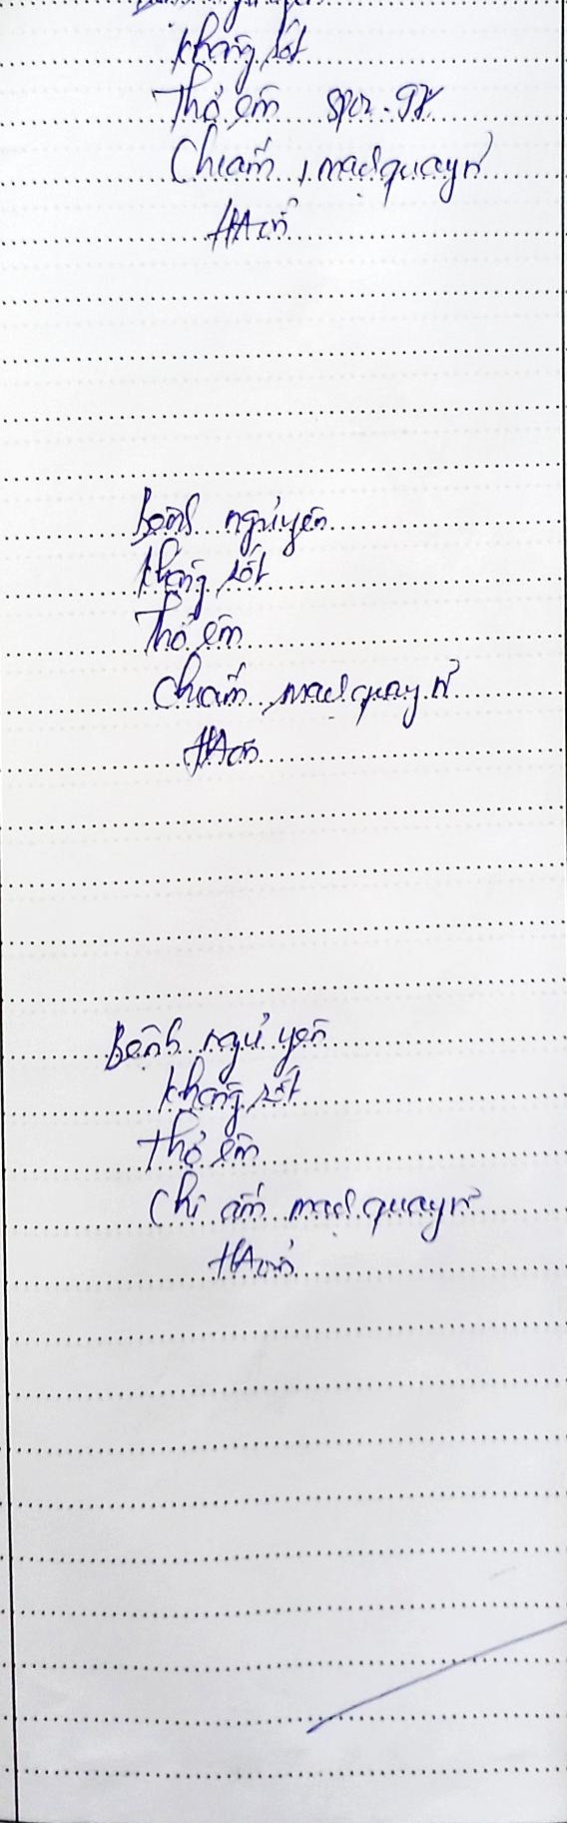 Không sốt
Thở êm SpO2: 97%
Chi ấm, mạch quay rõ
HA ổn
Bệnh ngủ yên
Không sốt
Thở êm
Chi ấm, mạch quay rõ
HA ổn
Bệnh ngủ yên
Không sốt
Thở êm
Chi ấm mạch quay rõ
HA ổn